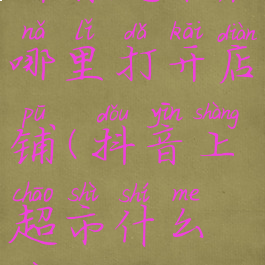 nǎ lǐ dǎ kāi diàn
哪里打开店
pù dǒu yīn shàng
铺(抖音上
chāo shì shí me
超市什么